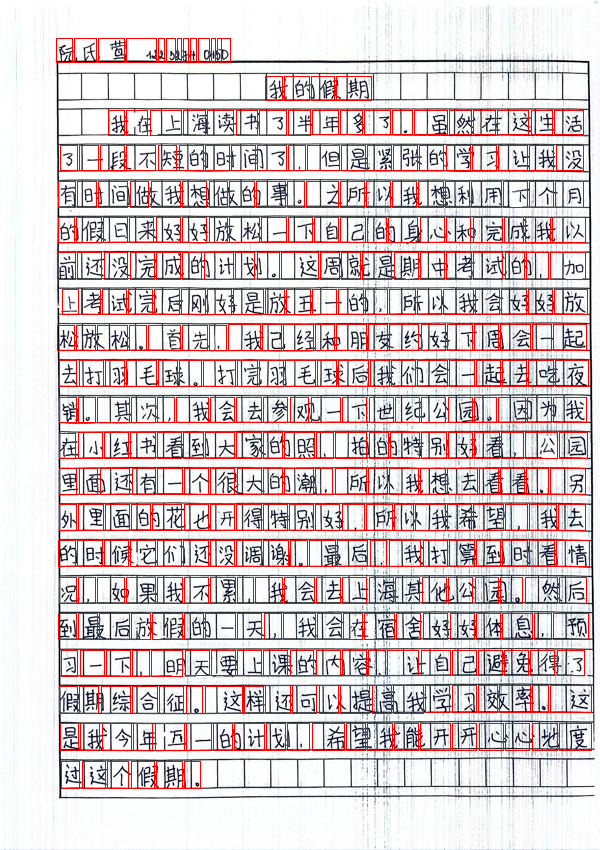 阮氏莺
我的假期
我在上海读书了半年多了。虽然在这生活
了一段不短的时间了,但是紧张的学习让我没
有时间做我想做的事。之所以我想利用下个月
的假日来好好放松一下自己的身心和完成我以
前还没完成的计划。这周就是期中考试的,加
上考试完后刚好是放五一的,所以我会好好放
松放松。首先,我已经和朋友约好下周会一起
去打羽毛球。打完羽毛球后我们会一起去吃夜
销。其次,我会去参观一下世纪公园。因为我
在小红书看到大家的照,拍的特别好看,公园
里面还有一个很大的潮,所以我想去看看。另
外里面的花也开得特别好,所以我希望,我去
的时候它们还没调谢。最后,我打算到时看情
况,如果我不累,我会去上海其他公园。然后
到最后放假的一天,我会在宿舍好好体息,预
习一下,明天要上课的内容,让自己避免得了
假期综合征。这样还可以提高我学习效率。这
是我今年五一的计划,希望我能开开心心地度
过这个假期。